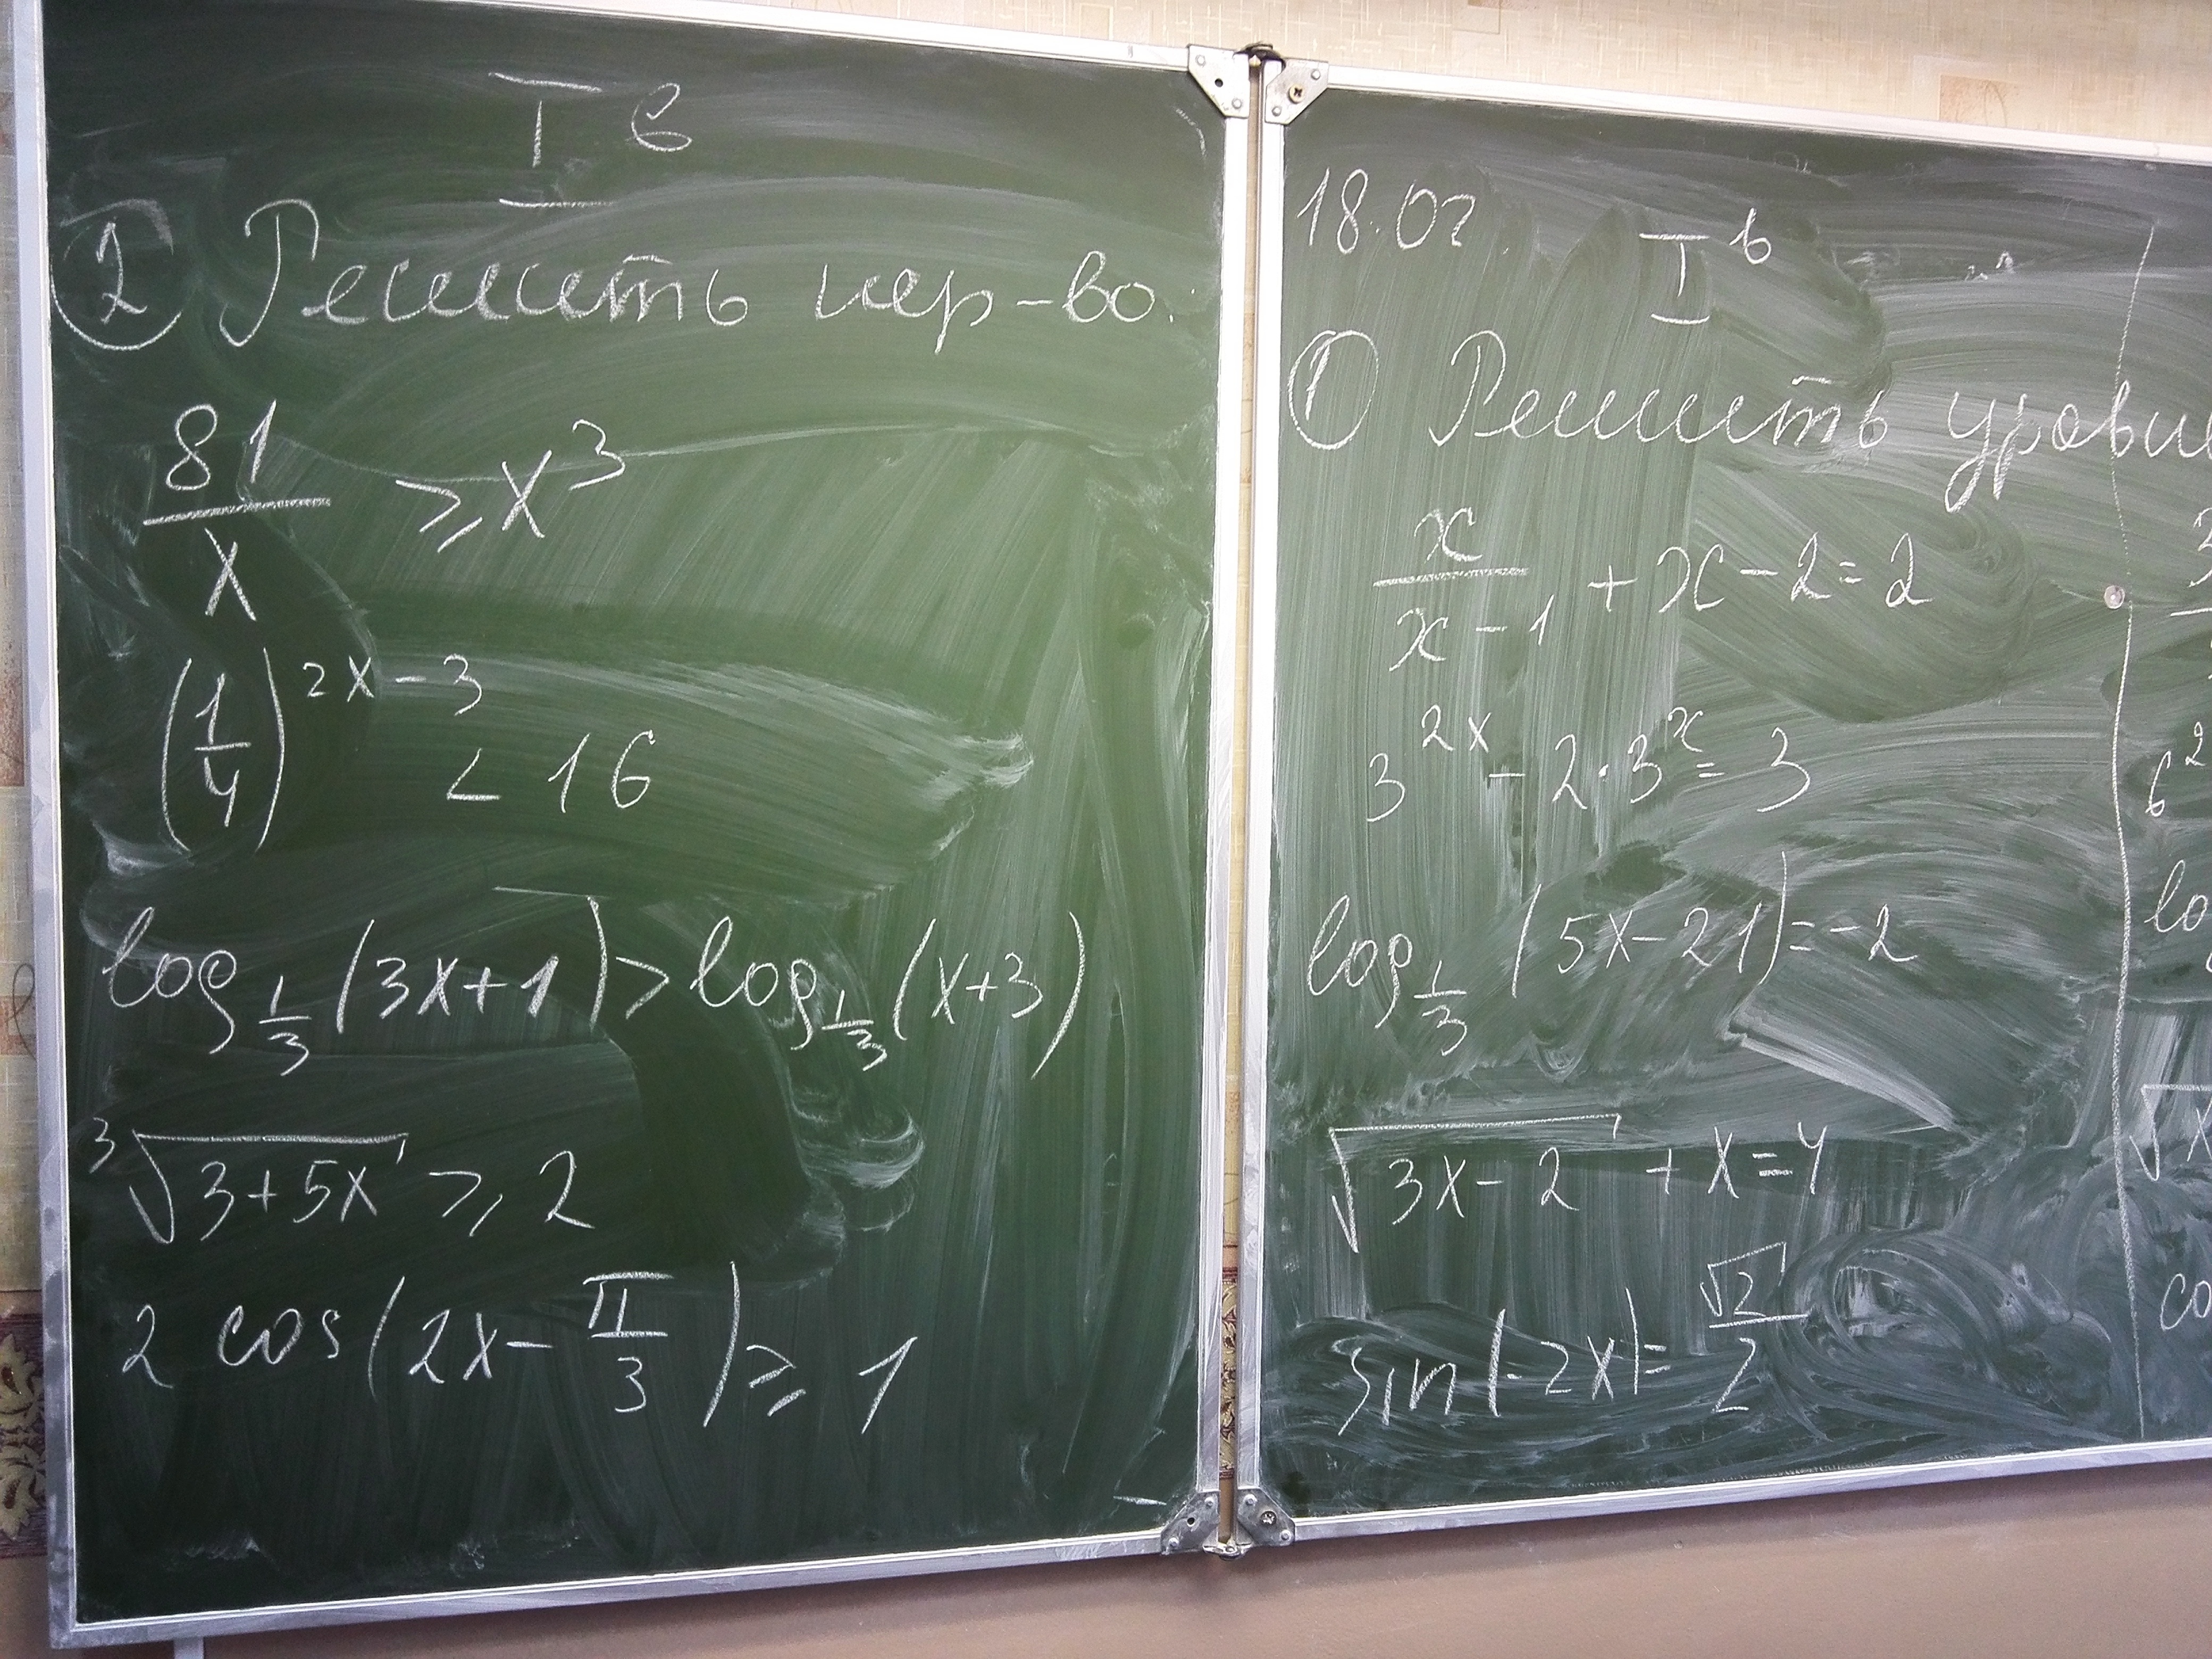 I в
② Решить нер-во:
81/x ⩾ x³
(1/4)^(2x-3) < 16
log_(1/3) (3x+1) > log_(1/3) (x+3)
∛(3+5x) ⩾ 2
2 cos(2x - π/3) ⩾ 1
18.02 I в
① Решить уравне
x/(x-1) + x - 2 = 2
3^(2x) - 2·3^x = 3
log_(1/3) (5x-21) = -2
√(3x-2) + x = 4
sin(-2x) = √2/2
6²
lo
√x
co